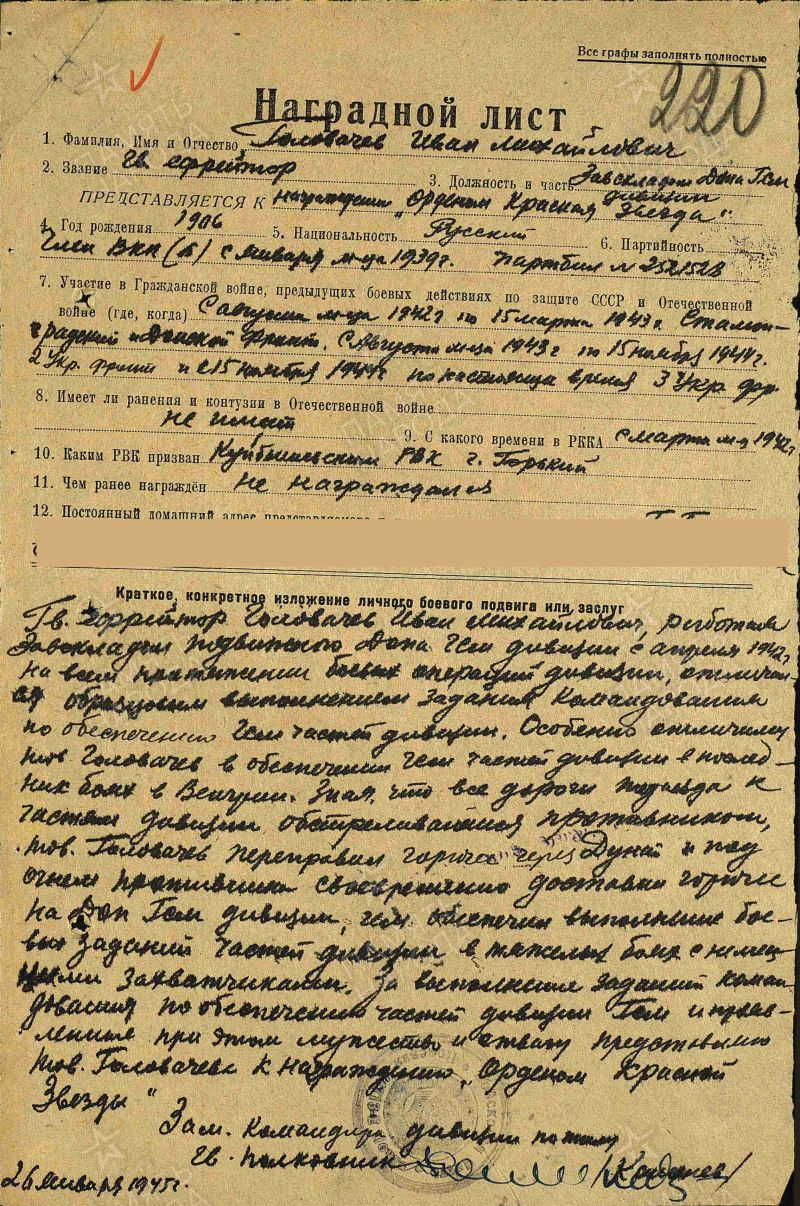 Все графы заполнять полностью
220
Наградной лист
1. Фамилия, Имя и Отчество Головачев Иван Михайлович
2. Звание Гв. ефрейтор
3. Должность и часть Завскладом Допа Гсм
дивизии
ПРЕДСТАВЛЯЕТСЯ К награждению „Орденом Красная Звезда"
4. Год рождения 1906 5. Национальность Русский 6. Партийность
Член ВКП(б) с января м-ца 1939г. Партбил N 2521528
7. Участие в Гражданской войне, предыдущих боевых действиях по защите СССР и Отечественной
войне (где, когда) С августа м-ца 1942г по 15 марта 1943г. Сталин-
градский и Донской фронт. С Августа м-ца 1943г по 15 ноября 1944г.
2 Укр. фронт и с 15 ноября 1944г по настояще время 3 Укр. фр
8. Имеет ли ранения и контузии в Отечественной войне
не имеет
9. С какого времени в РККА с марта м-ца 1942г
10. Каким РВК призван Куйбышевским РВК г. Горький
11. Чем ранее награждён не награждался
12. Постоянный домашний адрес
Краткое, конкретное изложение личного боевого подвига или заслуг
Гв. Ефрейтор Головачев Иван Михайлович, работая
Завскладом подвижного Допа Гсм дивизии с апреля 1942г.
на всем протяжении боевых операций дивизии, отличал-
ся образцовым выполнением задания Командования
по обеспечению Гсм частей дивизии. Особенно отличился
тов. Головачев в обеспечении Гсм частей дивизии в послед-
них боях в Венгрии. Зная, что все дороги подъезда к
частям дивизии обстреливаются противником,
тов. Головачев переправил горючее через Дунай и под
огнем противника своевременно доставил горючее
на Доп Гсм дивизии, чем обеспечил выполнение бое-
вых заданий частей дивизии в тяжелых боях с немец-
кими захватчиками. За выполнение заданий коман-
дования по обеспечению частей дивизии Гсм и прояв-
ленные при этом мужество и отвагу представляю
тов. Головачева к награждению „Орденом Красной
Звезды"
Зам. Командира дивизии по тылу
Гв. полковник
26 января 1945г.